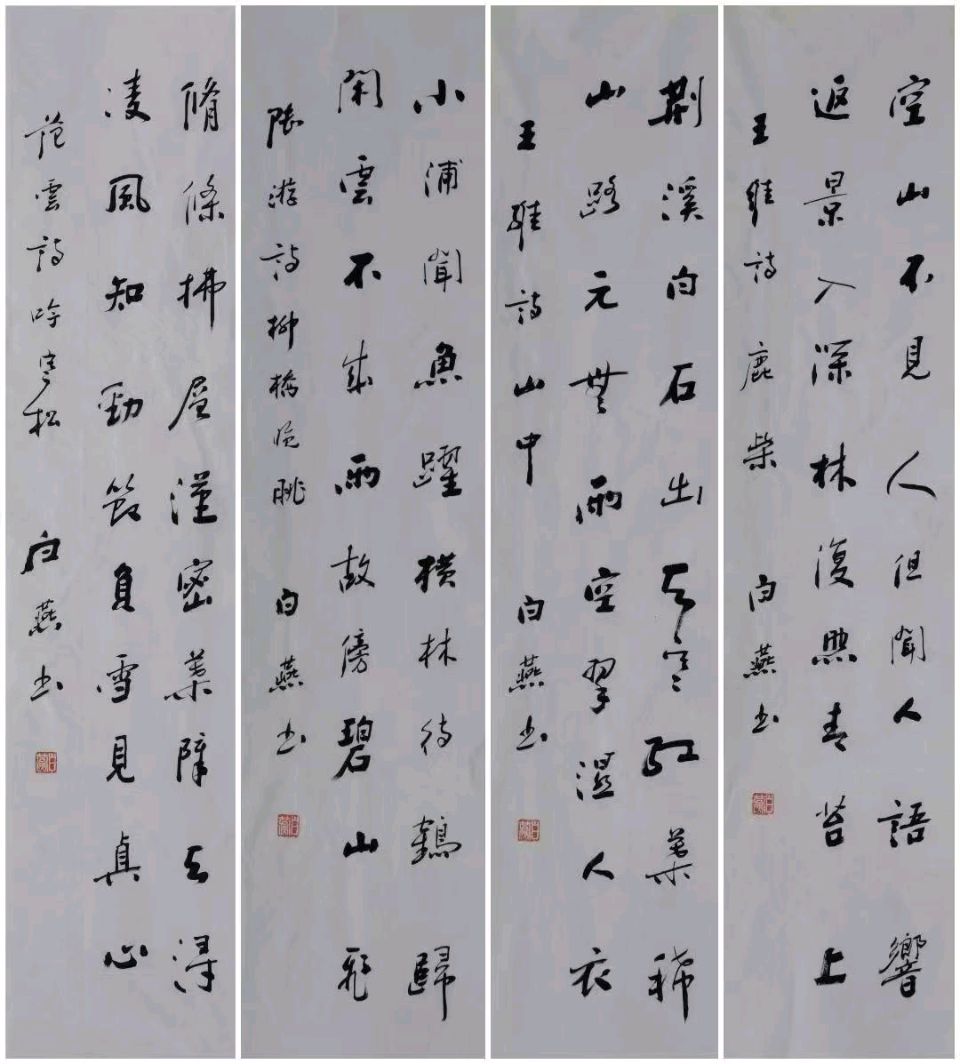 空山不見人但聞人語響
返景入深林復照青苔上
王維詩鹿柴 白燕书
荆溪白石出天寒紅葉稀
山路元無雨空翠濕人衣
王維詩山中 白燕书
小浦聞魚躍横林待鶴歸
閑雲不成雨故傍碧山飛
陸游詩柳橋晚眺 白燕书
脩條拂層漢密葉障天潯
凌風知勁節負雪見真心
范雲詩吟寒松 白燕书